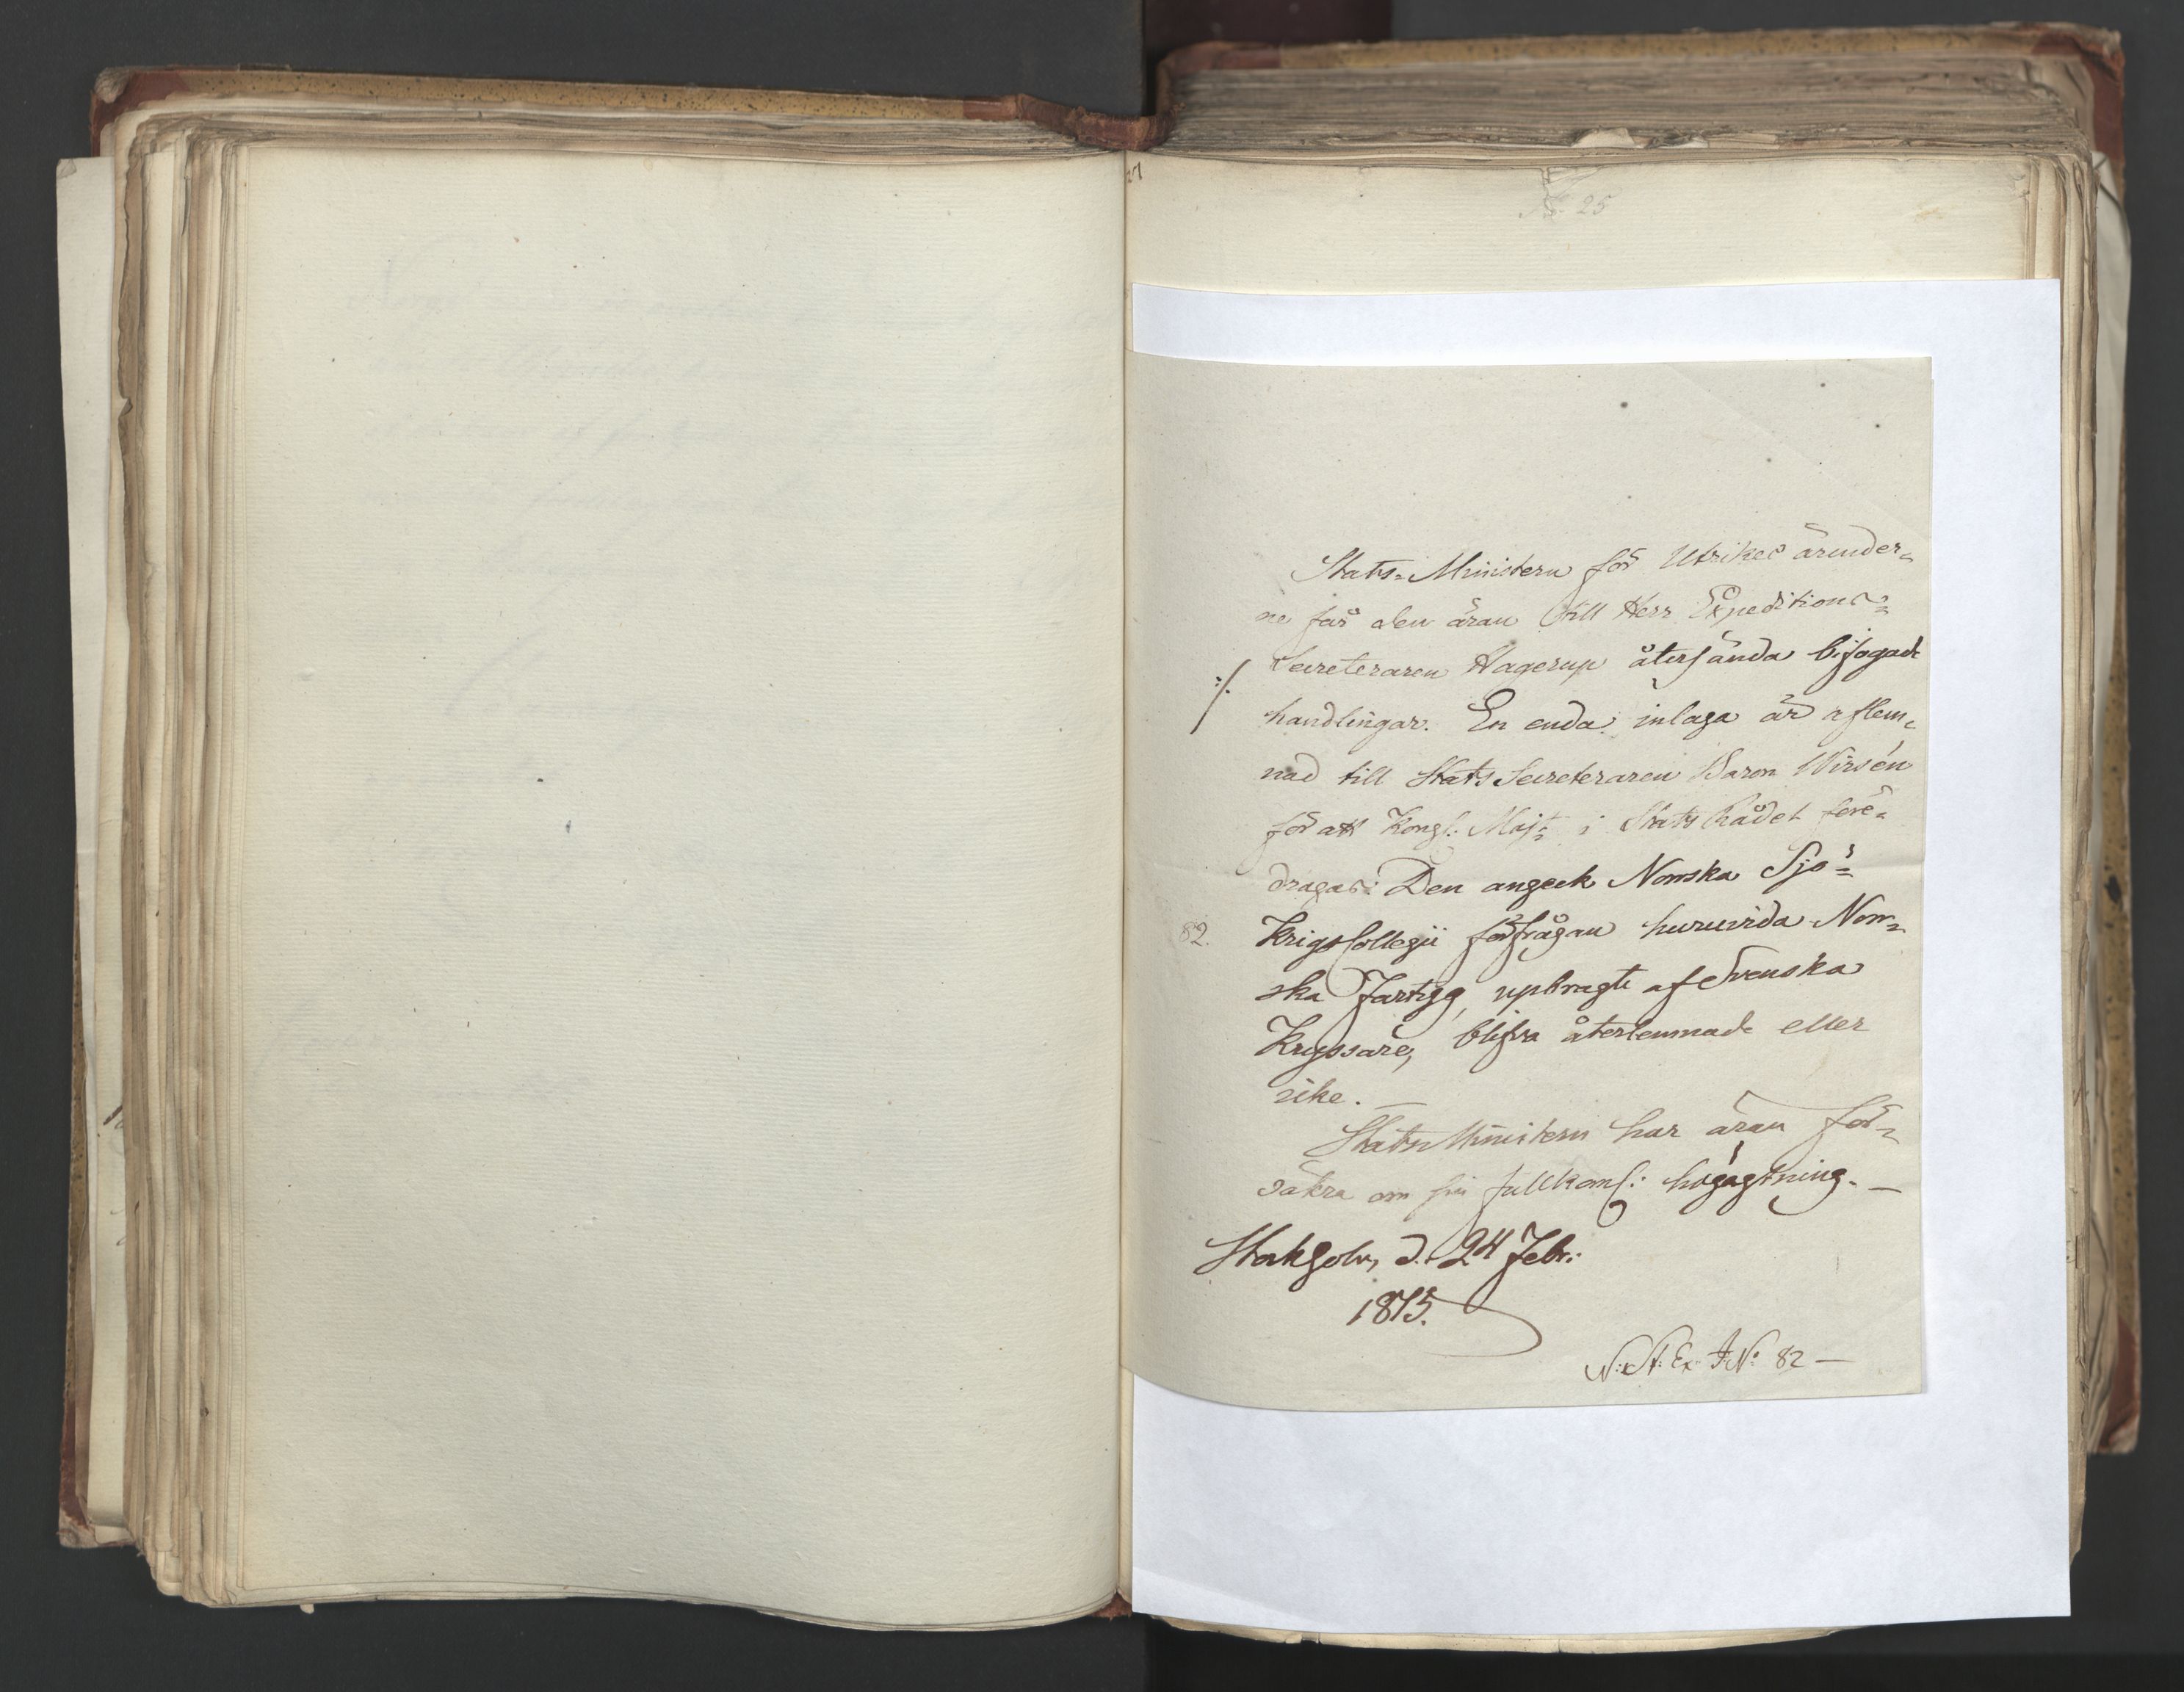 No 25
Stats-Ministern för Utrikes ärender-
ne får den äran till Herr Expeditions-
Secreteraren Hagerup återsända bifogade
handlingar. En enda inlaga är aflem-
nad till Stats Secreteraren Baron Wirsén
för att Kongl: Majt: i Stats Rådet före-
dragas: Den angeck Norrska Sjö-
82.
Krigs Collegii förfrågan huruvida Norr-
ska Fartyg, upbragte af Svenska
Kryssare, blifva återlemnade eller
icke. —
Stats Ministern har äran för-
säkra om sin fullkoml: högagtning. —
Stokholm, d. 24 Febr:
1815.
N: St: Ex: J. No: 82 —